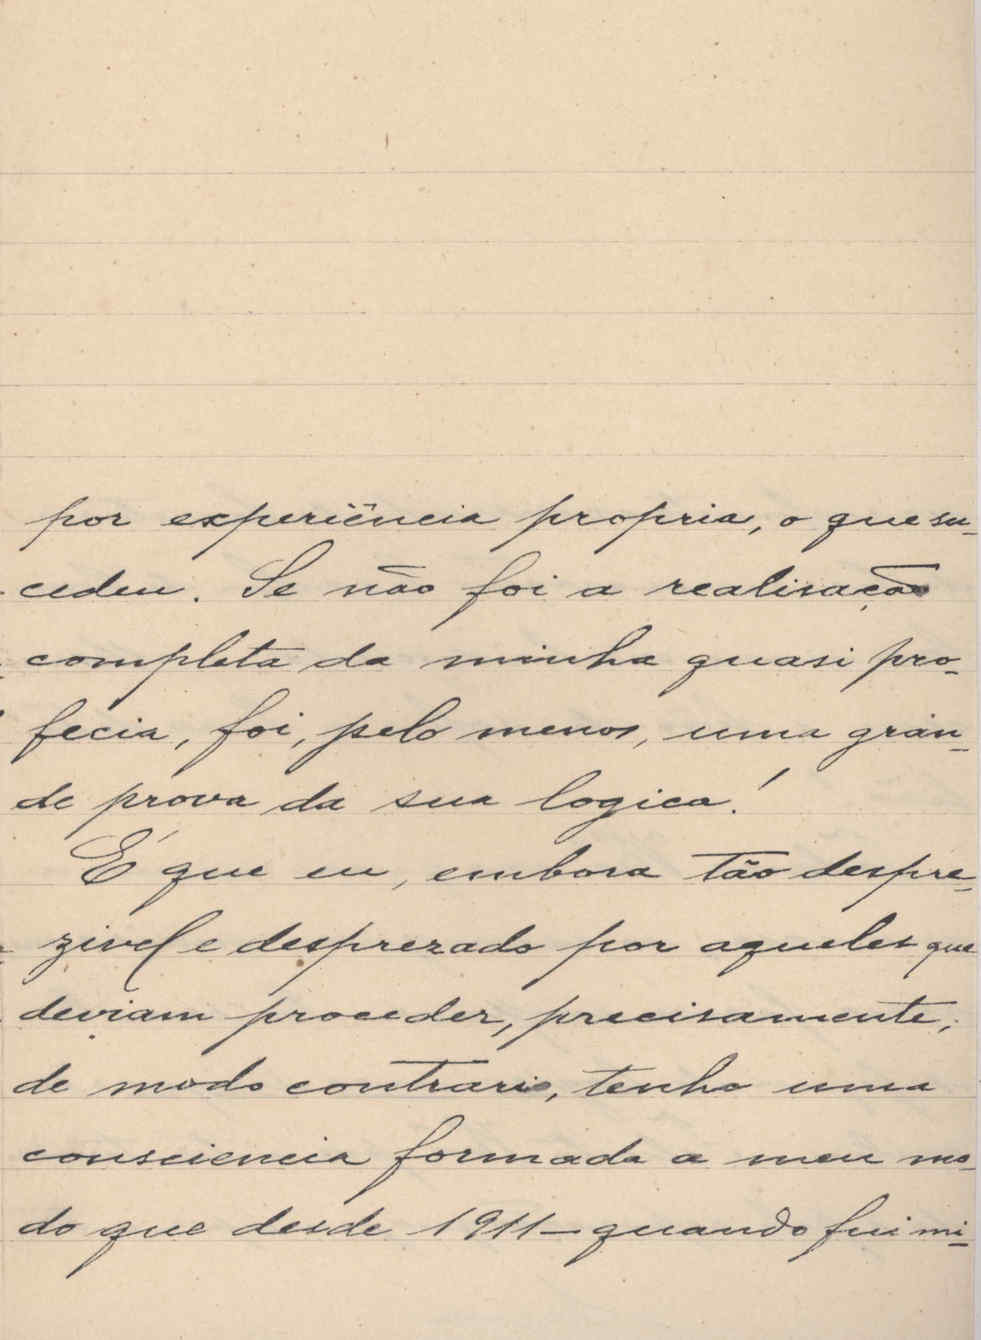 por experiência propria, o que su-
cedeu. Se não foi a realisação
completa da minha quasi pro-
fecia, foi, pelo menos, uma gran-
de prova da sua logica!
É que eu, embora tão despre-
zivel e desprezado por aqueles que
deviam proceder, precisamente,
de modo contrario, tenho uma
consciencia formada a meu mo-
do que desde 1911 - quando fui mi-